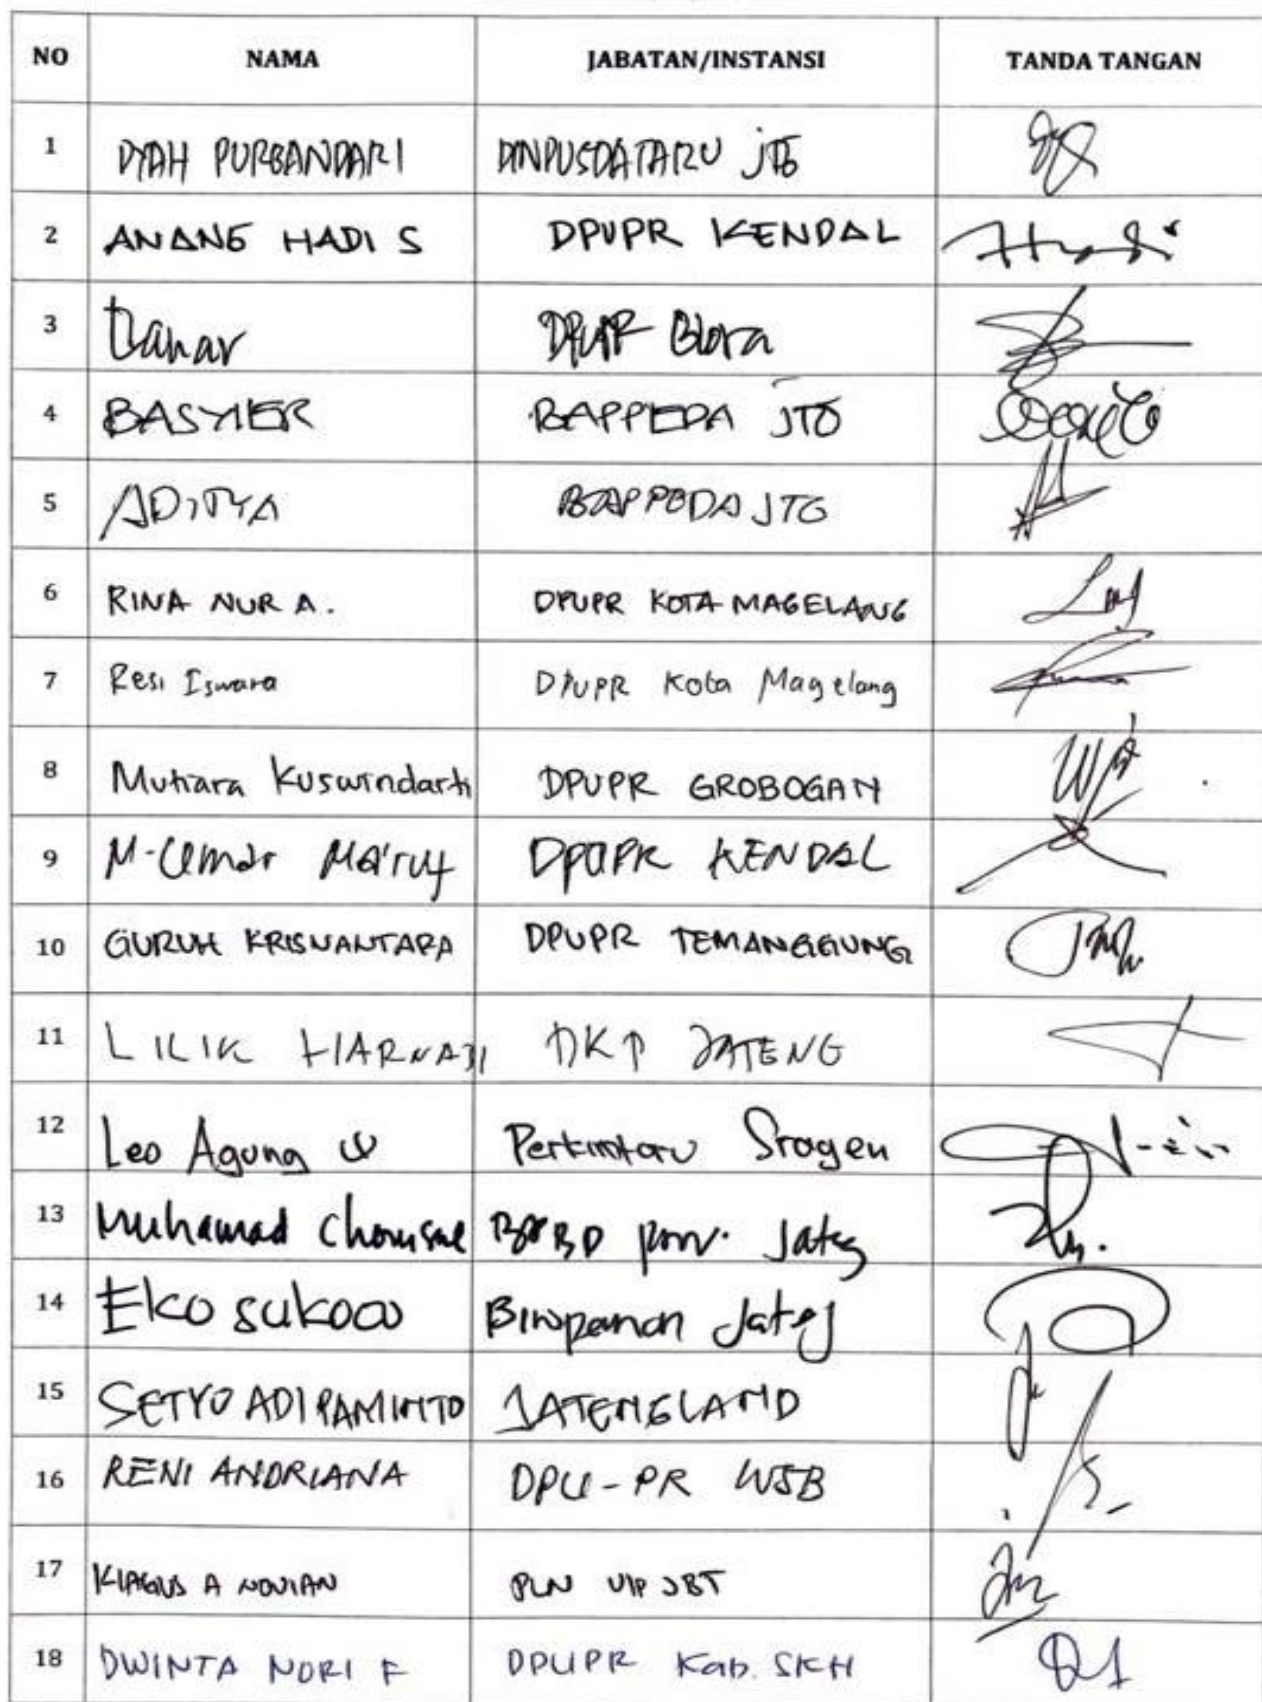 NO NAMA JABATAN/INSTANSI TANDA TANGAN
1 DYAH PURBANDARI DINPUSDATARU JTG
2 ANANG HADI S DPUPR KENDAL
3 Danar DPUPR Blora
4 BASYIER BAPPEDA JTG
5 ADITYA BAPPEDA JTG
6 RINA NUR A. DPUPR KOTA MAGELANG
7 Resi Iswara DPUPR Kota Magelang
8 Mutiara Kuswindarti DPUPR GROBOGAN
9 M. Umar Ma'ruf DPUPR KENDAL
10 GURUH KRISNANTARA DPUPR TEMANGGUNG
11 LILIK HARNADI DKP JATENG
12 Leo Agung Perkimtaru Sragen
13 Muhamad BPBD prov. Jateng
14 Eko Jateng
15 SETYO ADI PAMINTO JATENGLAND
16 RENI ANDRIANA DPU-PR WSB
17 KIAGUS A NOVIAN PLN UIP JBT
18 DWINTA NORI F DPUPR Kab. SKH